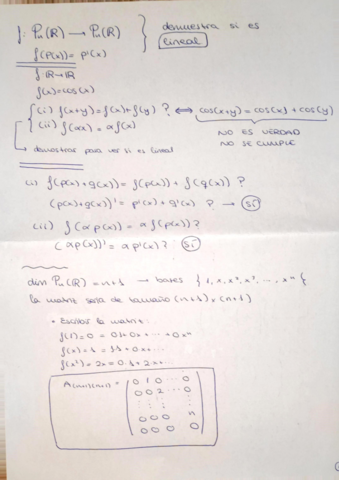 f: Pn(R) → Pn(R) } demuestra si es
lineal
f(p(x)) = p'(x)
f: R→R
f(x)=cos(x)
(i) f(x+y)=f(x)+f(y) ? ⟺ cos(x+y)=cos(x)+cos(y)
(ii) f(αx) = αf(x)
NO ES VERDAD
NO SE CUMPLE
→ demostrar para ver si es lineal
(i) f(p(x)+g(x)) = f(p(x)) + f(g(x)) ?
(p(x)+g(x))' = p'(x) + g'(x) ? → SÍ
(ii) f(αp(x)) = αf(p(x)) ?
(αp(x))' = αp'(x) ? SÍ
dim Pn(R) = n+1 → bases {1, x, x², x³, ..., xⁿ}
la matriz será de tamaño (n+1)x(n+1)
• Escribir la matriz:
f(1) = 0 = 0·1+0x+ ··· +0xⁿ
f(x) = 1 = 1·1+0x+...
f(x²) = 2x = 0·1+2·x+...
A(n+1)x(n+1) =
0 1 0 ··· 0
0 0 2 ··· 0
⋮ ⋮ ⋮ ⋮
0 0 0 n
0 0 0 0